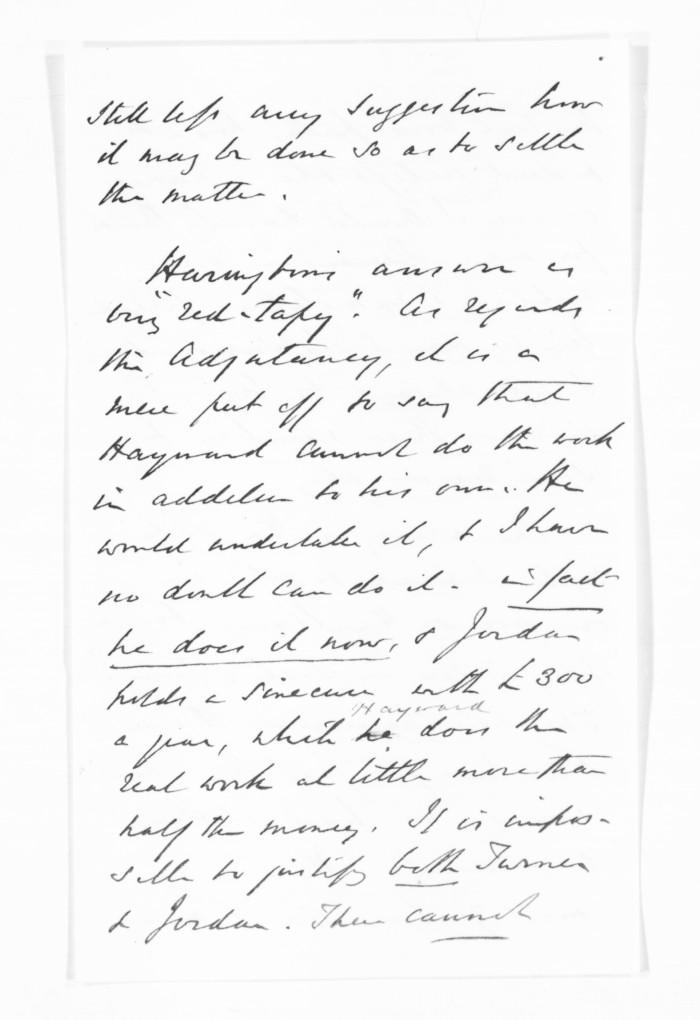 still less any suggestion how
it may be done so as to settle
the matter.
Harington's answer is
very "red-tapey". As regards
the Adjutancy, it is a
mere put off to say that
Hayward cannot do the work
in addition to his own. He
would undertake it, & I have
no doubt can do it - in fact
he does it now, & Jordan
holds a sinecure with £300
a year, while he does the
Hayward
real work at little more than
half the money. It is impos-
sible to justify both Turner
& Jordan. There cannot